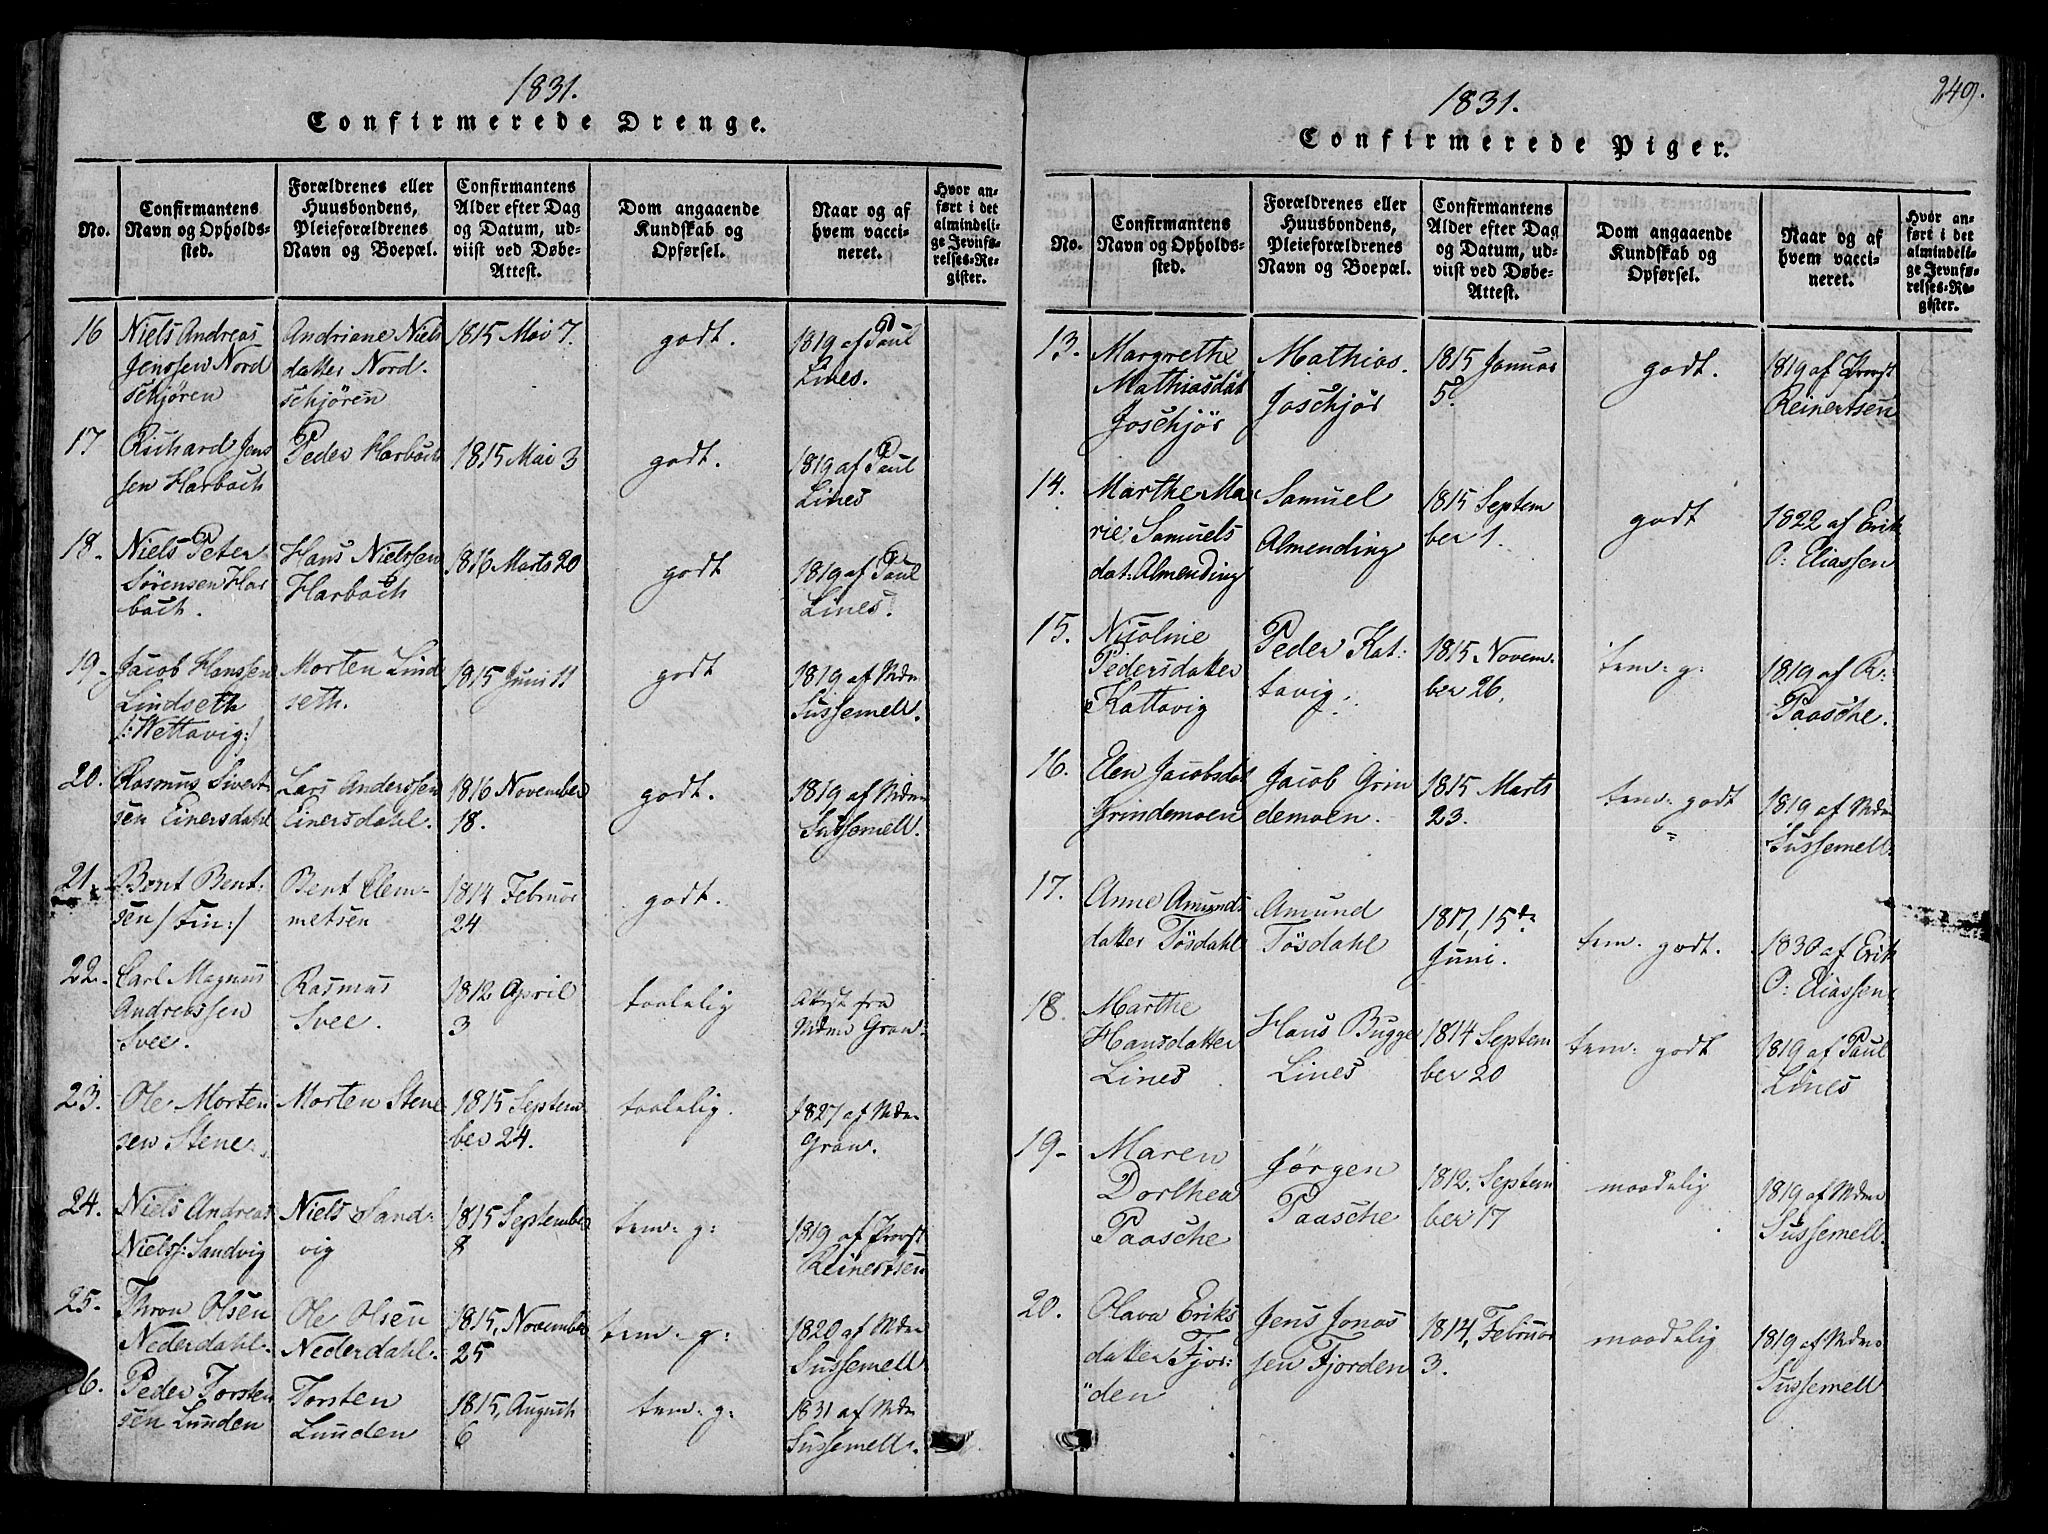 1831.
Confirmerede Drenge.
No.
Confirmantens
Navn og Opholds-
sted.
Forældrenes eller
Huusbondens,
Pleieforældrenes
Navn og Boepæl.
Confirmantens
Alder efter Dag
og Datum, ud-
viist ved Døbe-
Attest.
Dom angaaende
Kundskab og
Opførsel.
Naar og af
hvem vacci-
neret.
Hvor an-
ført i det
almindeli-
ge Jevnfø-
relses-Re-
gister.
16
Niels Andreas
Jenssen Nord
schjøren
Andriane Niels
datter Nord.
schjøren
1815 Mai 7.
godt.
1819 af Paul
Lines.
17
Richard Jens
sen Harbach
Peder Harbach
1815 Mai 3
godt.
1819 af Paul
Lines
18.
Niels Peter
Sørensen Har
bach.
Hans Nielssen
Harbach
1816 Marts 20
godt
1819 af Paul
Lines.
19.
Jacob Hanssen
Lindseth
/:Wettavig:/
Morten Lind
seth.
1815 Juni 11
godt
1819 af Mdm
Sussemell.
20.
Rasmus Sivert
sen Einersdahl
Lars Anderssen
Einersdahl.
1816 November
18.
godt.
1819 af Mdm
Sussemell.
21.
Bent Bent:
sen /Fin:/
Bent Clem-
metsen
1814 Februar
24
godt.
22.
Carl Magnus
Andreassen
Svee.
Rasmus
Svee.
1812 April
3
taalelig
Attest fra
Mdm Gran.
23.
Ole Morten
sen Stene.
Morten Stene
1815 Septem
ber 24.
taalelig.
1827 af Mdm
Gran.
24.
Niels Andreas
Nielss: Sandvig
Niels Sand:
vig
1815 September
8
tem: g:
1819 af Provst
Reinertsen
25.
Thron Olsen
Nederdahl.
Ole Olsen
Nederdahl.
1815, November
25
tem: g:
1820 af Mdm
Sussemell
26.
Peder Torsten
sen Lunden
Torsten
Lunden
1815, August
6
tem: g:
1831 af Mdm
Sussemell.
249.
1831.
Confirmerede Piger.
No.
Confirmantens
Navn og Opholds-
sted.
Forældrenes eller
Huusbondens,
Pleieforældrenes
Navn og Boepæl.
Confirmantens
Alder efter Dag
og Datum, ud-
viist ved Døbe-
Attest.
Dom angaaende
Kundskab og
Opførsel.
Naar og af
hvem vacci-
neret.
Hvor an-
ført i det
almindeli-
ge Jevnfø-
relses-Re-
gister.
13.
Margrethe
Mathiasdat
Joschjør
Mathias.
Joschjør
1815 Januar
5.
godt.
1819 af Provst
Reinertsen
14.
Marthe Ma
rie Samuels
dat: Almending
Samuel
Almending
1815 Septem
ber 1.
godt
1822 af Erik
O: Eliassen
15.
Nicoline
Pedersdatter
Kattavig
Peder Kat:
tavig.
1815 Novem-
ber 26.
tem: g:
1819 af R:
Paasche.
16.
Elen Jacobsdat
Grindemoen
Jacob Grin
demoen.
1815 Marts
23.
tem: godt
1819 af Mdm
Sussemell.
17.
Anne Amunds
datter Tösdahl
Amund
Tösdahl
1817, 15de
Juni.
tem: godt.
1830 af Erik
O: Eliassen
18.
Marthe
Hansdatter
Lines
Hans Bugge
Lines
1814 Septem
ber 20
tem: godt
1819 af Paul
Lines
19.
Maren
Dorthea
Paasche
Jørgen
Paasche
1812, Septem
ber 17
maadelig
1819 af Mdm
Sussemell.
20.
Olava Eriks
datter Fjor:
den
Jens Jonas
sen Fjorden
1814, Februar
3.
maadelig
1819 af Mdm
Sussemell